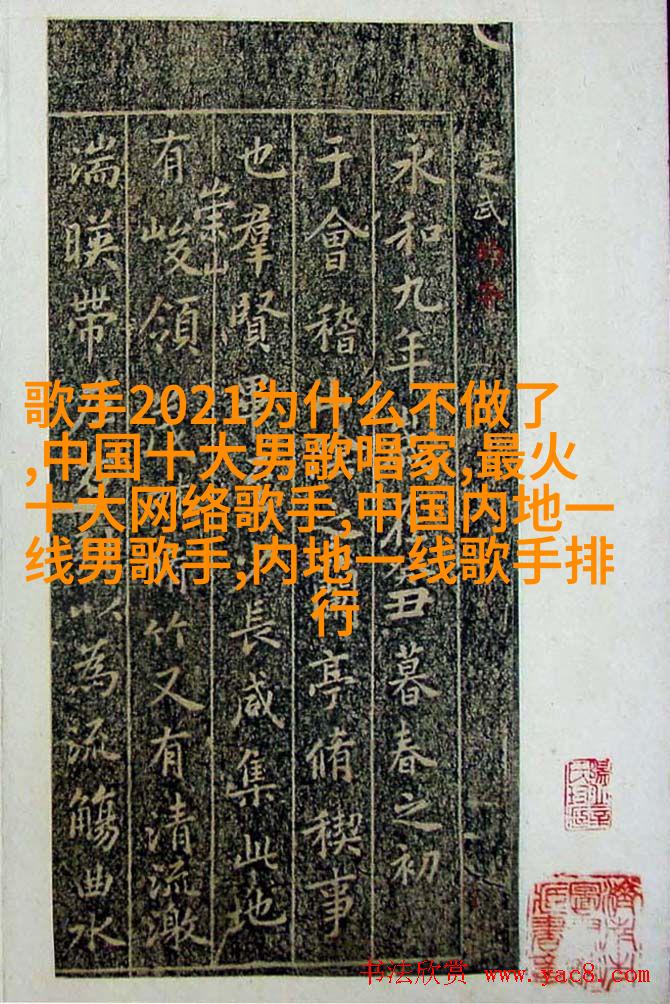 歌手2021为什么不做了
,中国十大男歌唱家,最火
十大网络歌手,中国内地一
线男歌手,内地一线歌手排
行
定武
永和九年丑暮春之初
于會稽亭脩稧事
也羣賢長咸集此地
有崇山峻領竹又有清流激
湍暎帶以為流觴曲水
书法欣赏 www.yac8.com